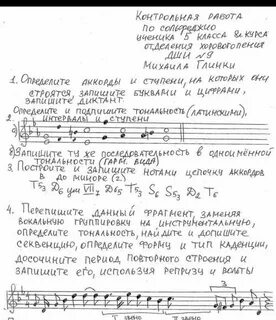 Контрольная работа
по сольфеджио
ученика 5 класса 8 курса
отделения хорового пения
ДШИ №9
Михаила Глинки
1. Определите аккорды и ступени, на которых они
строятся, запишите буквами и цифрами,
запишите диктант.
Определите и подпишите тональность (латинскими),
2. интервалы и ступени
в) Запишите ту же последовательность в одноимённой
тональности (гарм. вида)
3. Постройте и запишите нотами цепочку аккордов
в до миноре (г.)
T53 D6 ум VII7 D65 T53 S6 S53 D2 T6
4. Перепишите данный фрагмент, заменяя
вокальную группировку на инструментальную,
определите тональность, найдите и допишите
секвенцию, определите форму и тип каденции,
досочините период повторного строения и
запишите его, используя репризу и вольты
I звено II звено